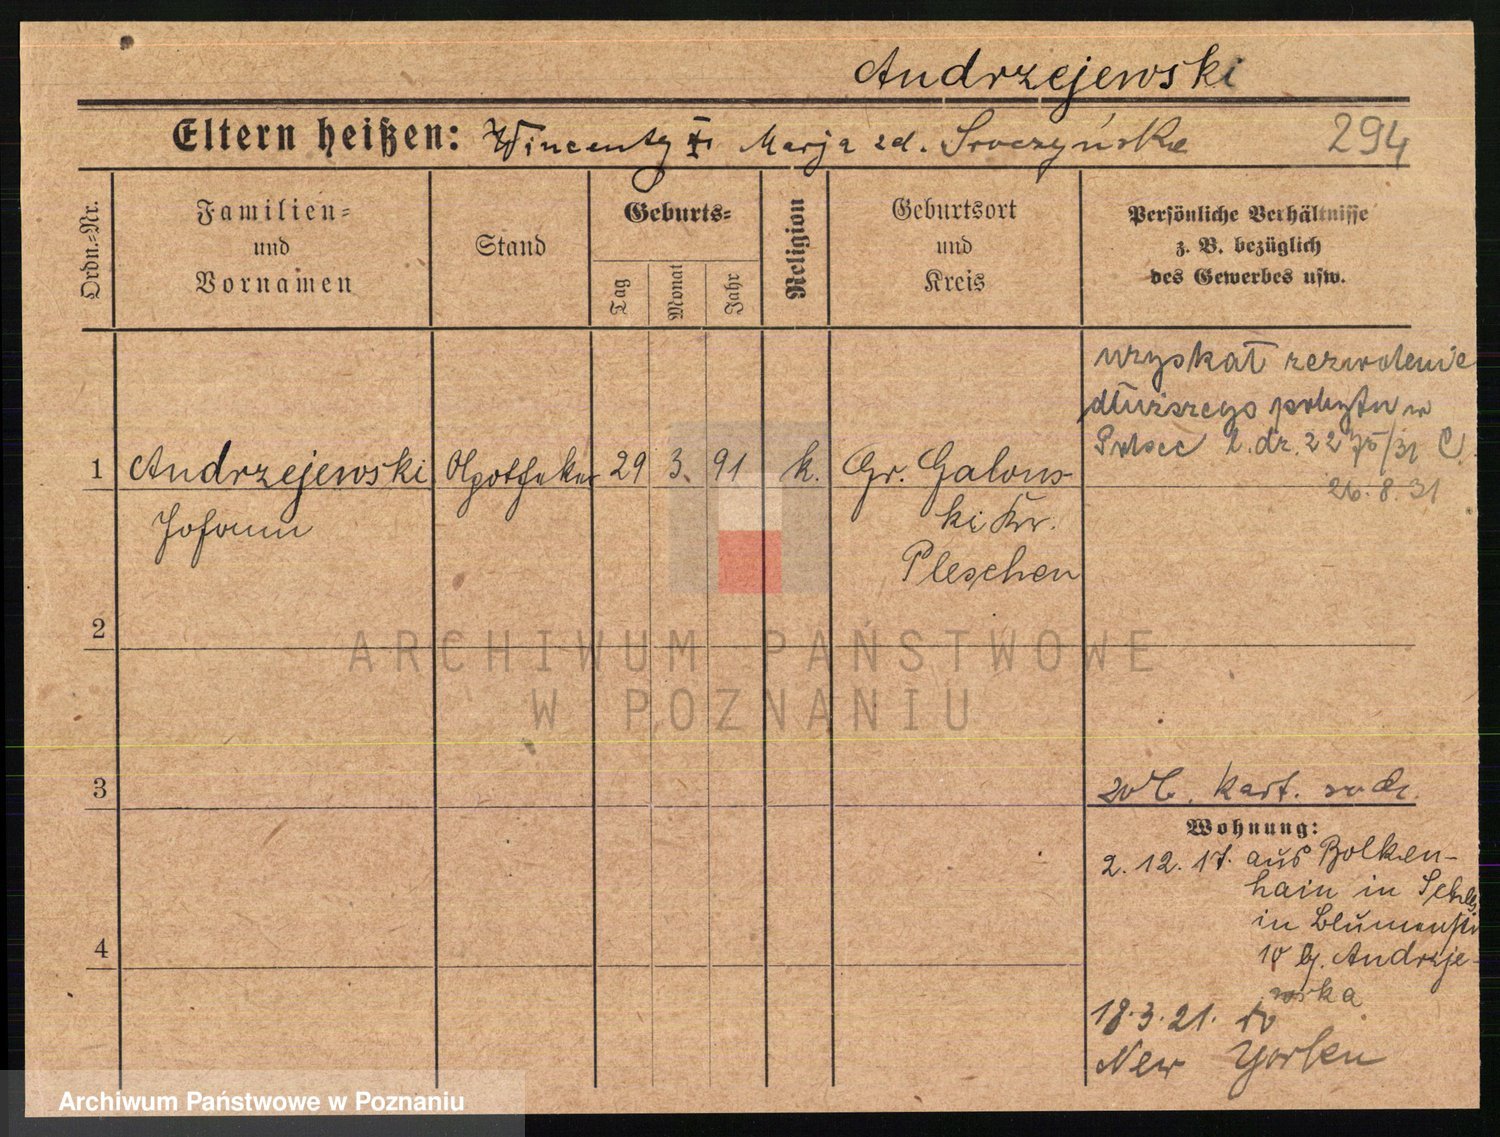 Andrzejewski
Eltern heißen: Wincenty i Marja zd. Sroczyńska 294
Ordn.-Nr.
Familien-
und
Vornamen
Stand
Geburts-
Tag
Monat
Jahr
Religion
Geburtsort
und
Kreis
Persönliche Verhältnisse
z. B. bezüglich
des Gewerbes usw.
uzyskał zezwolenie
dłuższego pobytu w
Polsce L. dz. 2275/31
26. 8. 31
1 Andrzejewski Apotheker 29 3. 91 k. Gr. Galows
Johann
ki Kr.
Pleschen
2
3
kart.
Wohnung:
2. 12. 17. aus Bolken-
hain in Schles.
in Blumenstr
10 b. Andrzje-
wska
18. 3. 21. w
New Yorken
4
ARCHIWUM PAŃSTWOWE
W POZNANIU
Archiwum Państwowe w Poznaniu